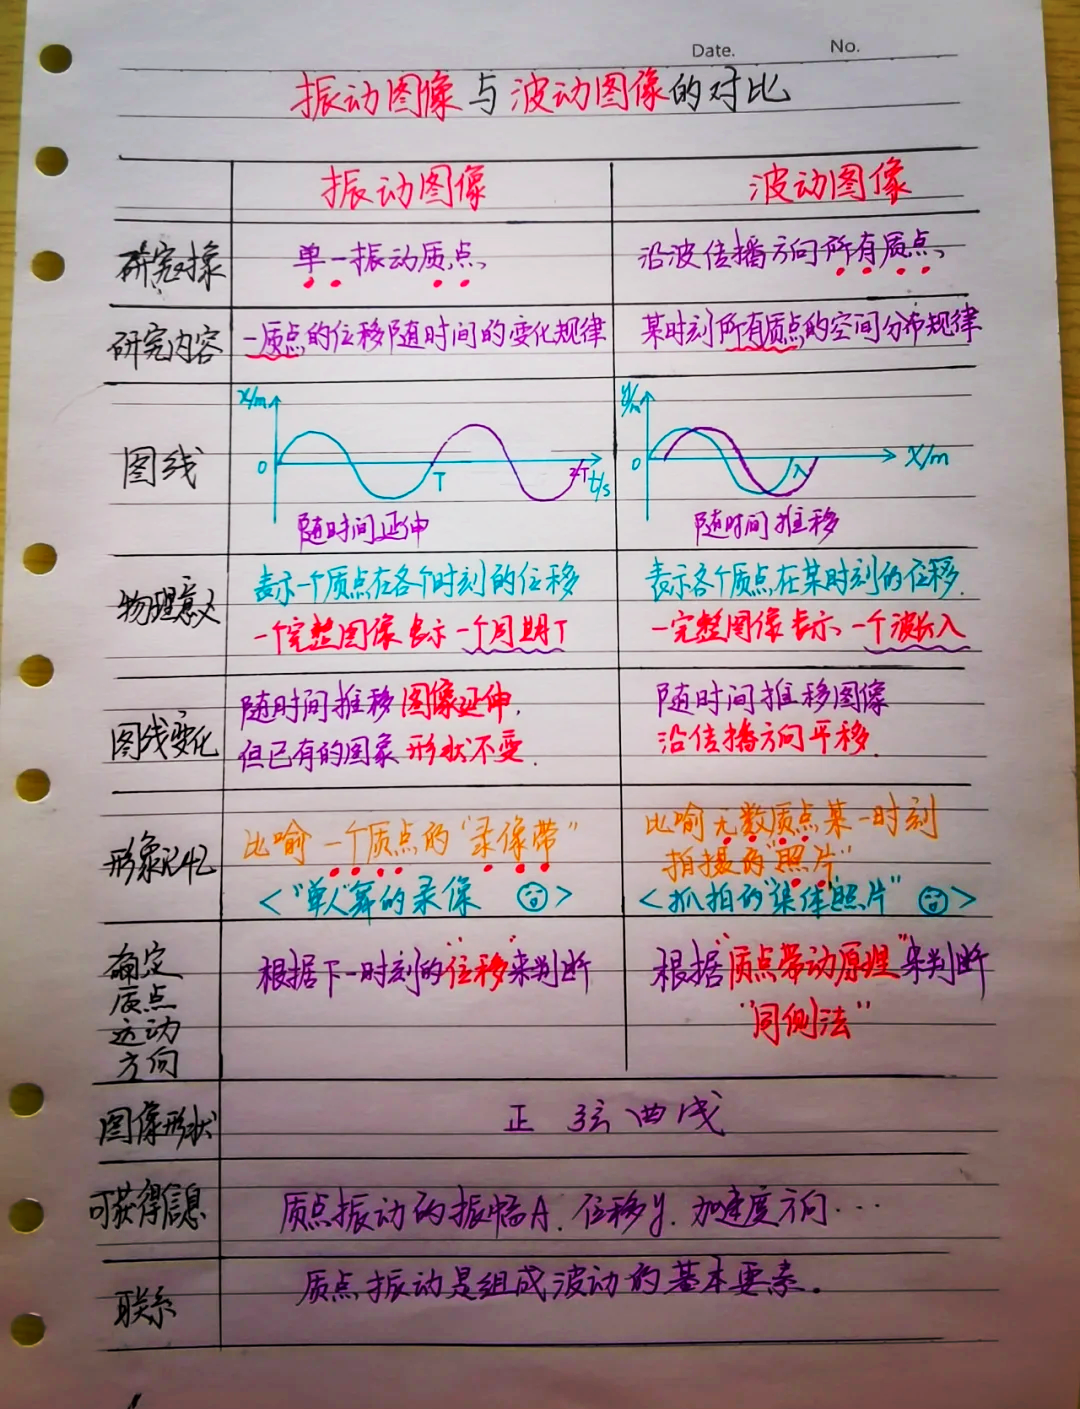 Date. No.
振动图像与波动图像的对比
振动图像 波动图像
研究对象 单一振动质点 沿波传播方向所有质点
研究内容 一质点的位移随时间的变化规律 某时刻所有质点的空间分布规律
图线
x/m
0 T 2T t/s
随时间延伸
y/m
0 λ X/m
随时间推移
物理意义
表示一个质点在各个时刻的位移
一个完整图像表示一个周期T
表示各个质点在某时刻的位移.
一完整图像表示一个波长λ
图线变化
随时间推移图像延伸,
但已有的图象形状不变.
随时间推移图像
沿传播方向平移.
形象记忆
比喻一个质点的“录像带”
<“单人”舞的录像 >
比喻无数质点某一时刻
拍摄的“照片”
<抓拍的“集体”照片” >
确定
质点
运动
方向
根据下一时刻的“位移”来判断
根据“质点带动原理”来判断
“同侧法”
图像形状 正弦曲线
可获得信息 质点振动的振幅A.位移y.加速度方向...
联系 质点振动是组成波动的基本要素.